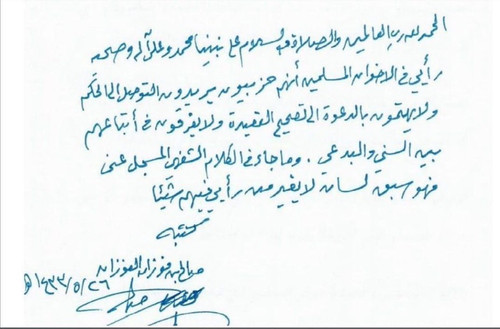 الحمد لله رب العالمين والصلاة والسلام على نبينا محمد وعلى آله وصحبه
رأيي في الاخوان المسلمين أنهم حزبيون يريدون التوصل إلى الحكم
ولا يهتمون بالدعوة الى تصحيح العقيدة ولا يفرقون في أتباعهم
بين السني والبدعي . وما جاء في الكلام الشفهي المسجل عني
فهو سبق لسان لا يغير من رأيي فيهم شيئا
كتبه
صالح بن فوزان الفوزان
١٤٣٣/٥/٢٦ هـ